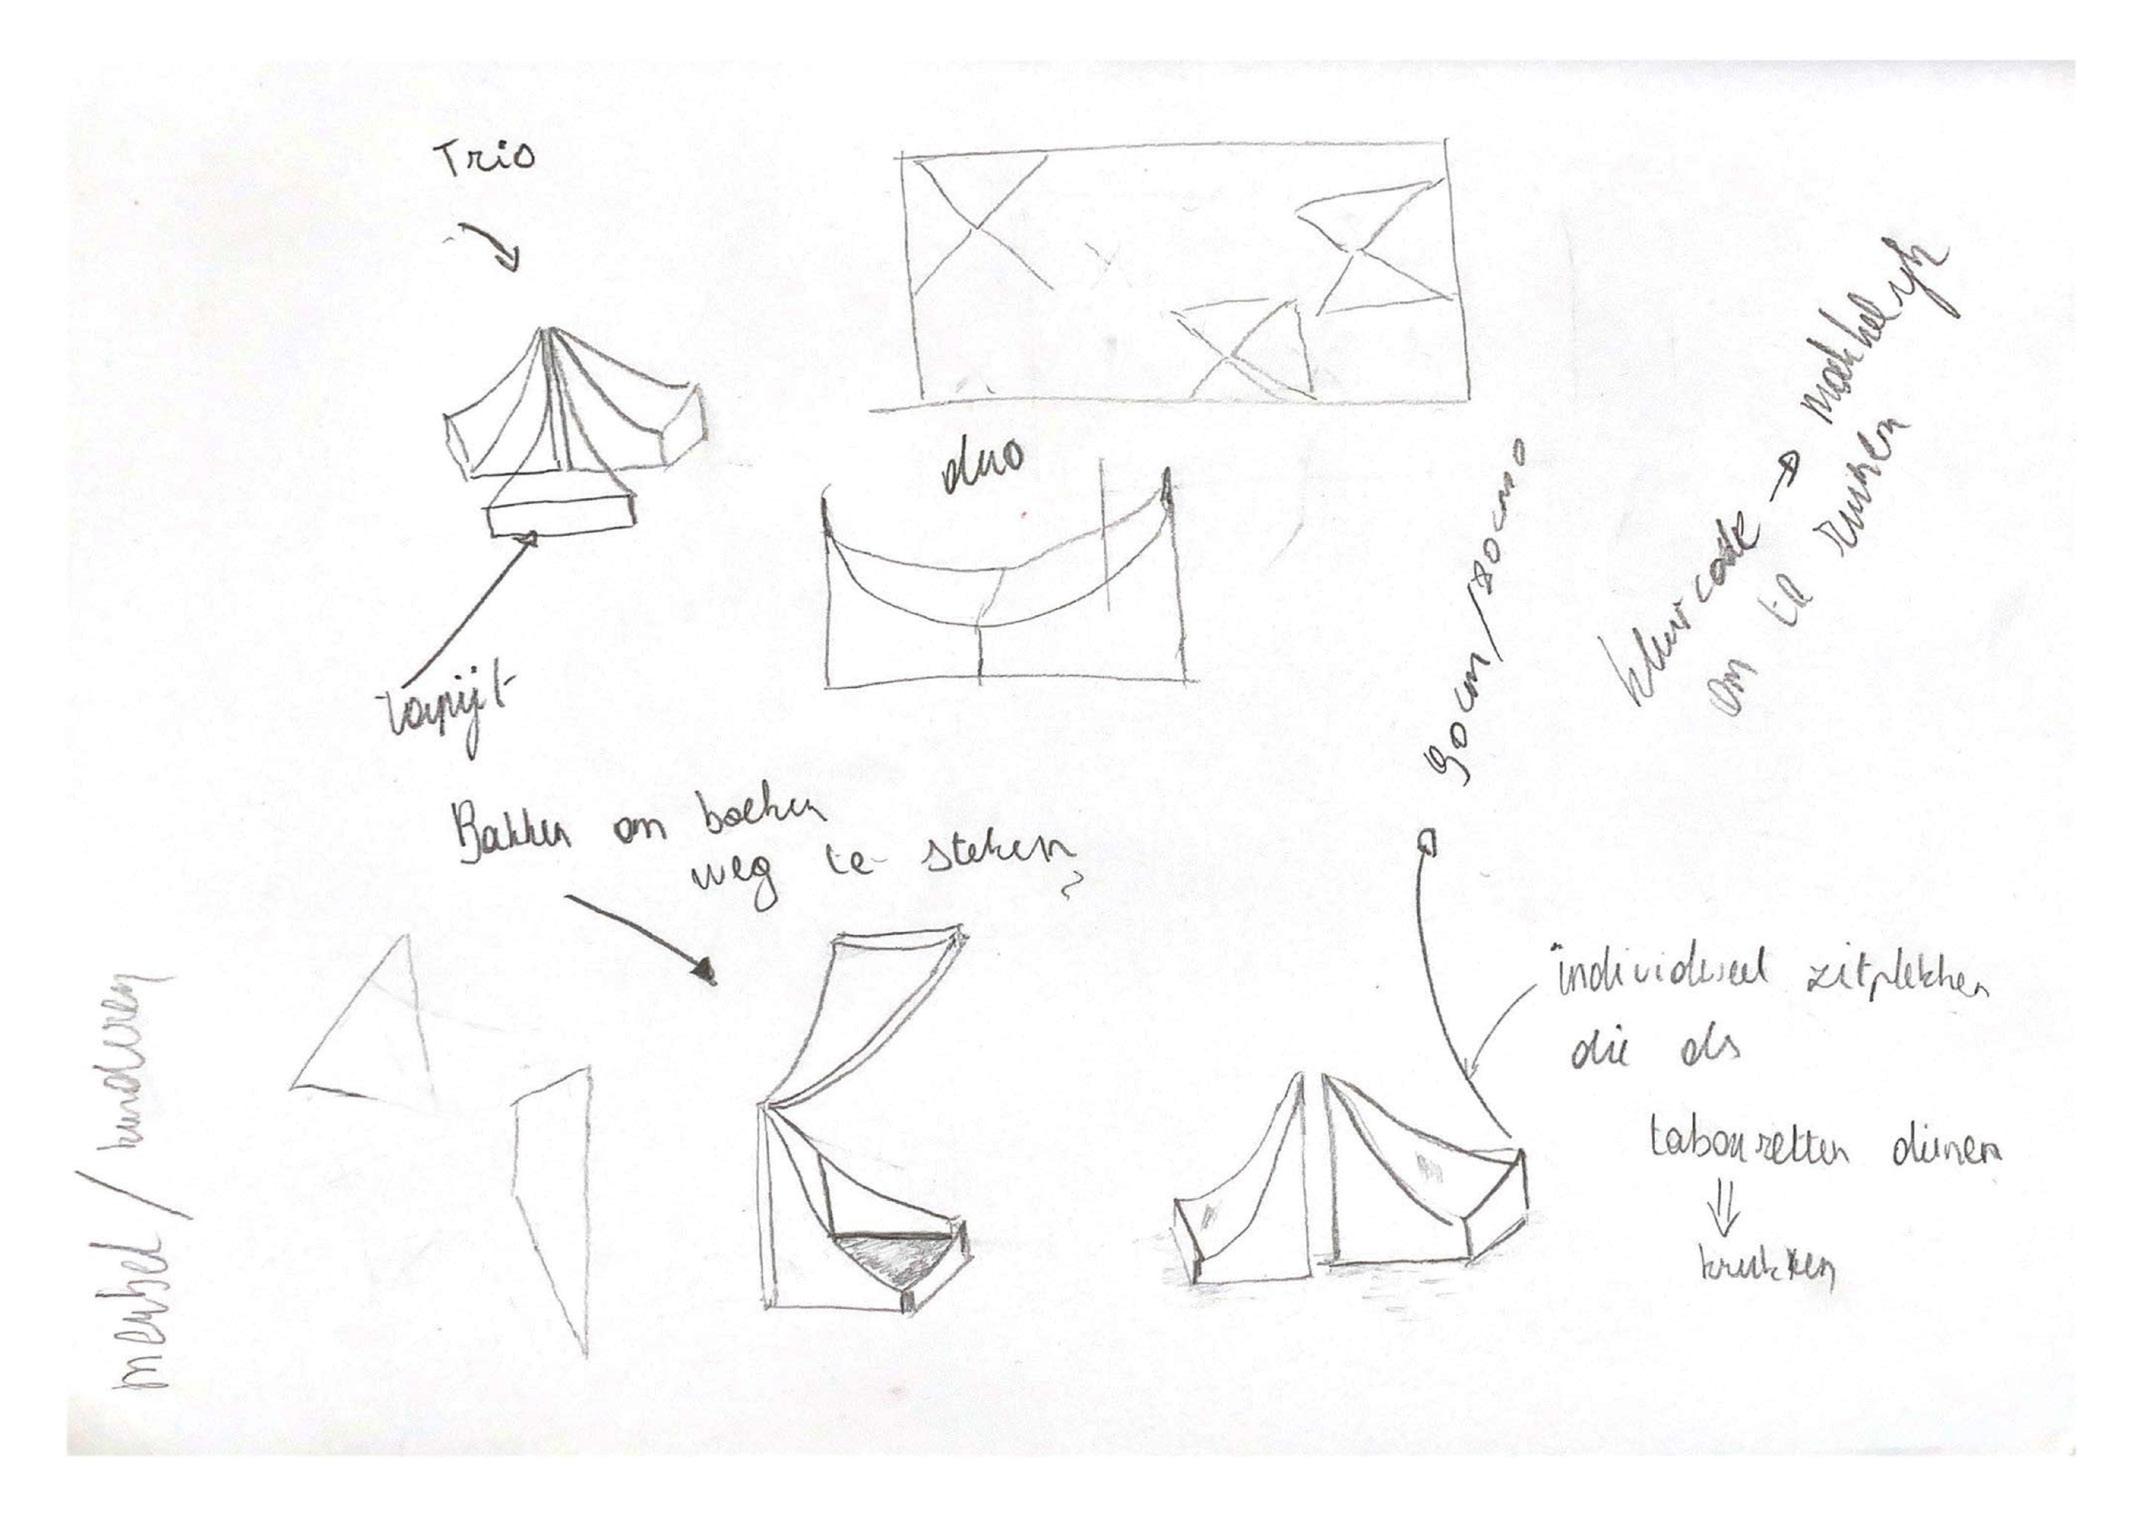 Trio
duo
tapijt
Bakken om boeken
weg te steken
?
90cm/80cm
kleurcode → makkelijk
om te ruimen
individueel zitplekken
die als
taboeretten dienen
⇓
krukken
meubel / kinderen